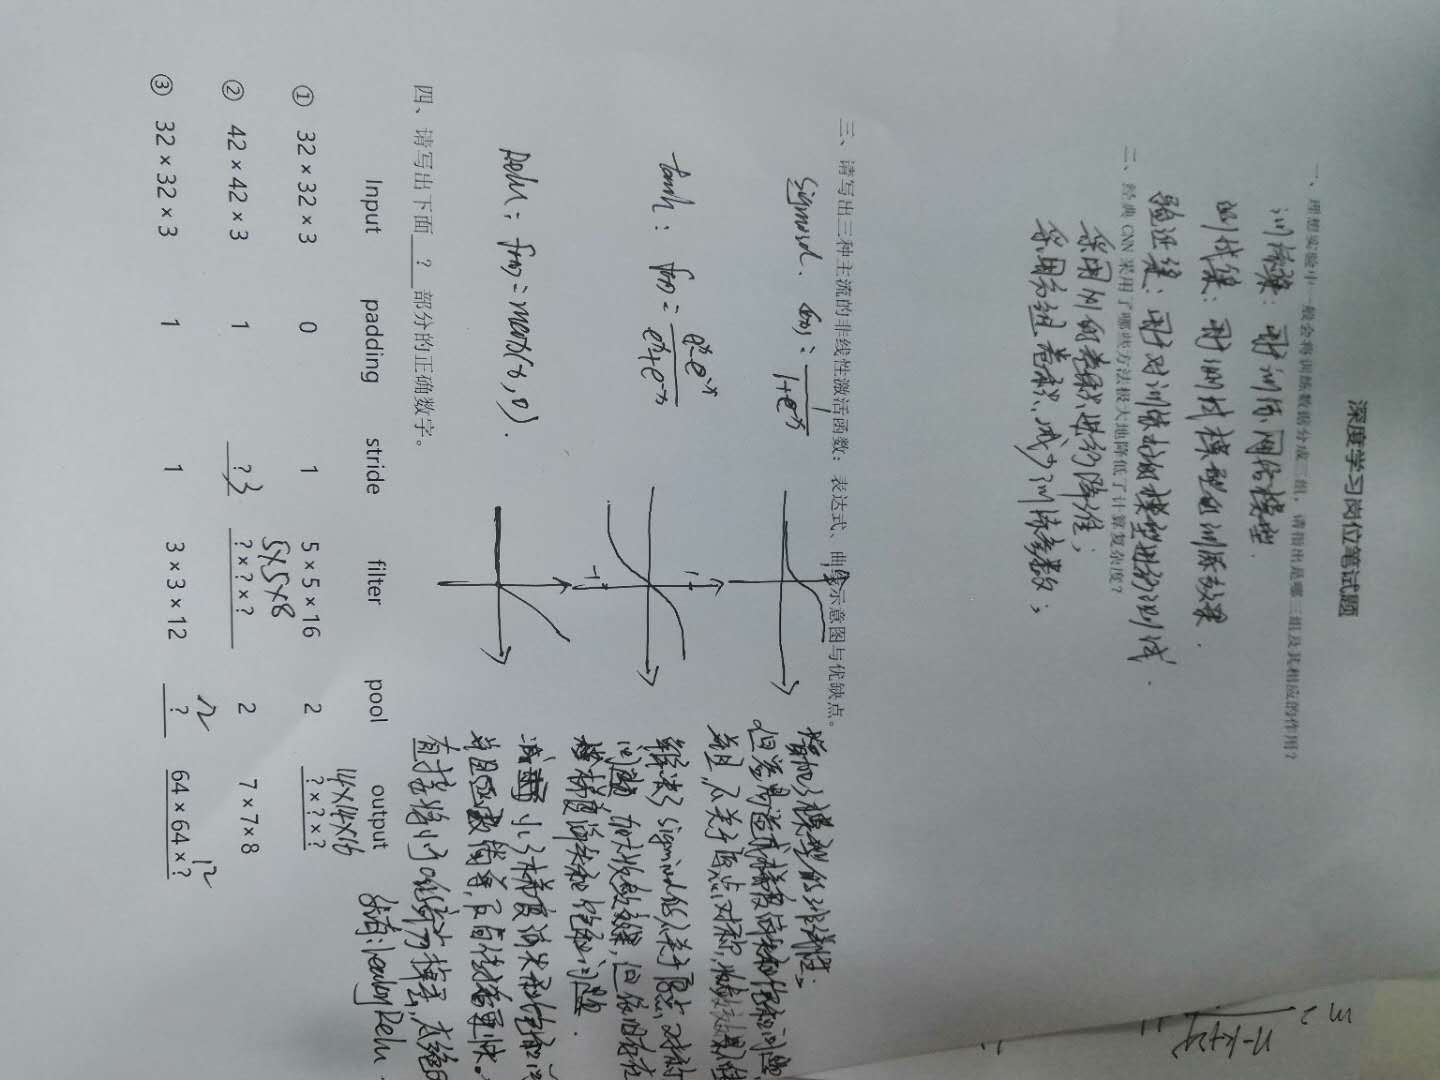 深度学习岗位笔试题
一、理想实验中一般会将训练数据分成三组，请指出是哪三组及其相应的作用？
训练集：用于训练网络模型.
测试集：用于测试模型的训练效果.
验证集：用于对训练好的模型进行测试.
二、经典 CNN 采用了哪些方法极大地降低了计算复杂度？
采用1x1的卷积进行降维；
采用分组卷积,减少训练参数；
三、请写出三种主流的非线性激活函数：表达式、曲线示意图与优缺点。
Sigmoid. f(x) = 1/(1+e^-x)
1
增加了模型的非线性；
但容易造成梯度消失和饱和问题,
并且,不关于原点对称,收敛效果不佳
tanh: f(x) = (e^x-e^-x)/(e^x+e^-x)
1
-1
解决了sigmoid的不关于原点对称的
问题,加大收敛效果,但依旧存在
梯度消失和饱和问题.
Relu: f(x) = max(x,0).
减小了梯度消失和饱和问
并且函数简单,反向传播更快。
直接将小于0的部分掉丢,在
还有:leaky Relu
四、请写出下面__?__部分的正确数字。
Input padding stride filter pool output
14×14×16
① 32 × 32 × 3 0 1 5 × 5 × 16 2 ? × ? × ?
5×5×8
② 42 × 42 × 3 1 ? 3 ? × ? × ? 2 7 × 7 × 8
12
③ 32 × 32 × 3 1 1 3 × 3 × 12 ? 64 × 64 × ?
m =
n-k+2p